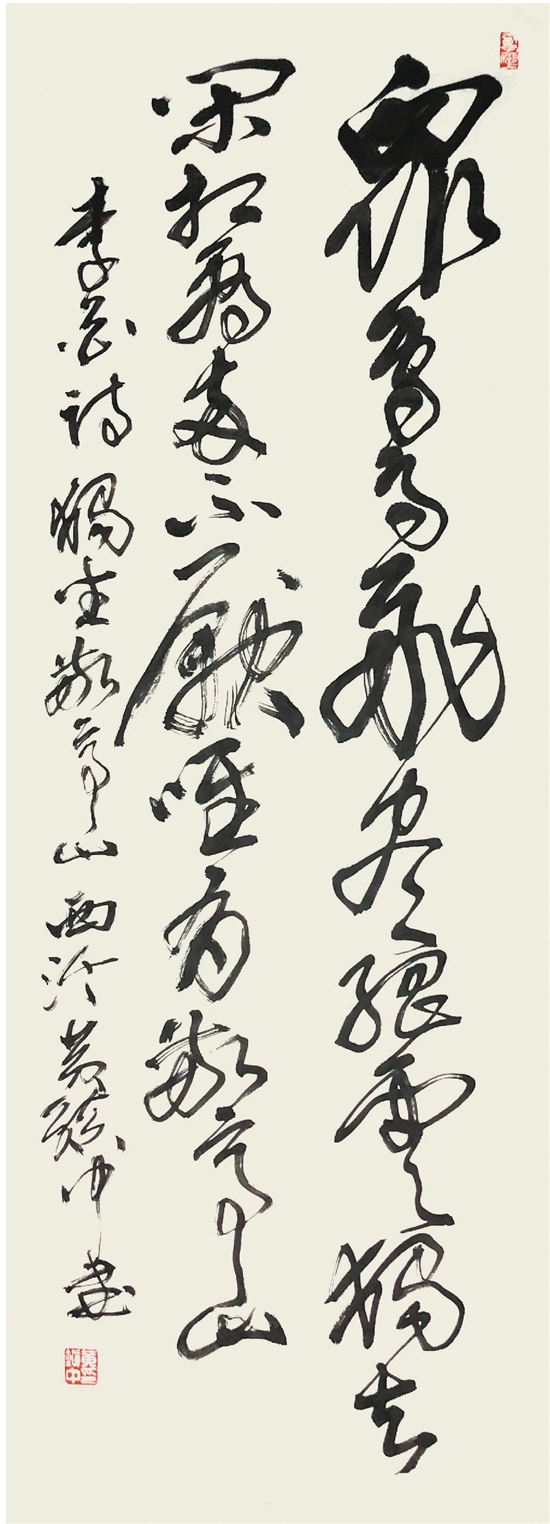 眾鳥高飛盡孤雲獨去
閑相看兩不厭唯有敬亭山
李白詩 獨坐敬亭山 西泠 書